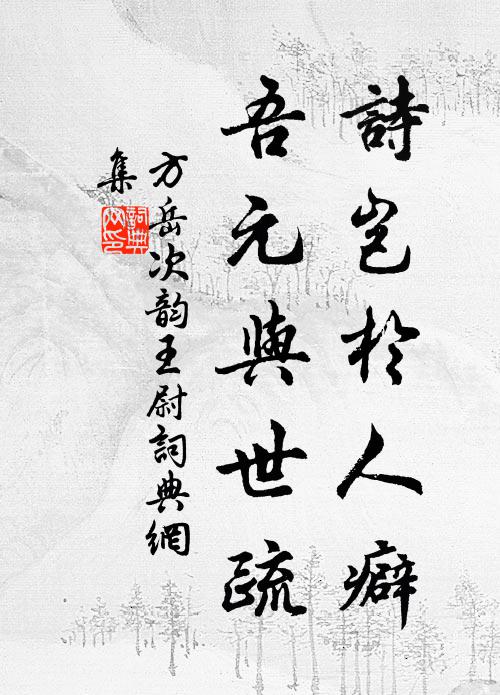 詩豈於人癖
吾元與世疏
方岳次韵王尉詞典網
集
詞典網印